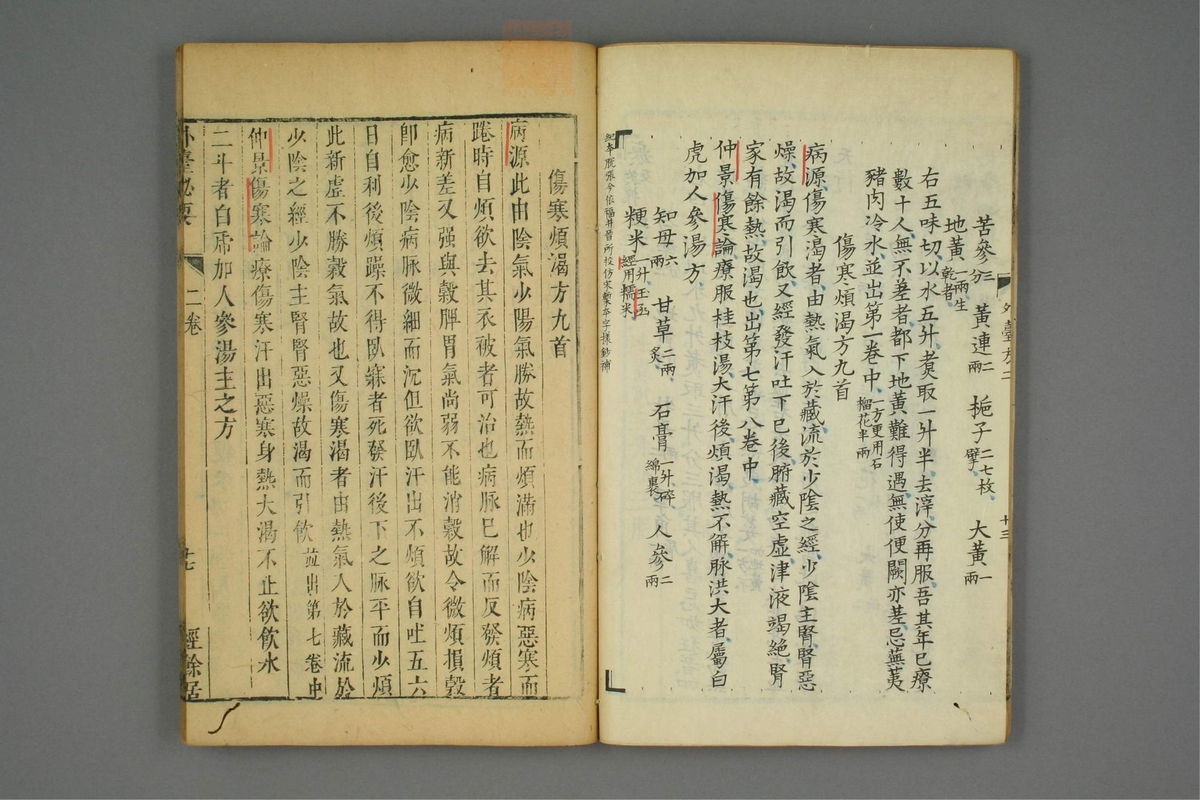 苦參三分 黃連二兩 梔子二七枚擘 大黃一兩
地黃一兩生乾者
右五味切以水五升煑取一升半去滓分再服吾其年已療
數十人無不差者都下地黃難得遇無使便闕亦差忌蕪荑
豬肉冷水並出第一卷中一方更用石榴花半兩
傷寒煩渴方九首
病源傷寒渴者由熱氣入於藏流於少陰之經少陰主腎腎惡
燥故渴而引飲又經發汗吐下已後腑藏空虛津液竭絕腎
家有餘熱故渴也出第七第八卷中
仲景傷寒論療服桂枝湯大汗後煩渴熱不解脉洪大者屬白
虎加人參湯方
知母六兩 甘草二兩炙 石膏一升碎綿裹 人參二兩
粳米一升玉函經用糯米
外臺方二
十三
傷寒煩渴方九首
病源此由陰氣少陽氣勝故熱而煩滿也少陰病惡寒而
踡時自煩欲去其衣被者可治也病脉已解而反發煩者
病新差又强與穀脾胃氣尚弱不能消穀故令微煩損穀
卽愈少陰病脉微細而沉但欲臥汗出不煩欲自吐五六
日自利後煩躁不得臥寐者死發汗後下之脉平而少煩
此新虛不勝穀氣故也又傷寒渴者由熱氣入於藏流於
少陰之經少陰主腎腎惡燥故渴而引飲並出第七卷中
仲景傷寒論療傷寒汗出惡寒身熱大渴不止欲飲水
二斗者白虎加人參湯主之方
外臺祕要
二卷
十七
經餘居